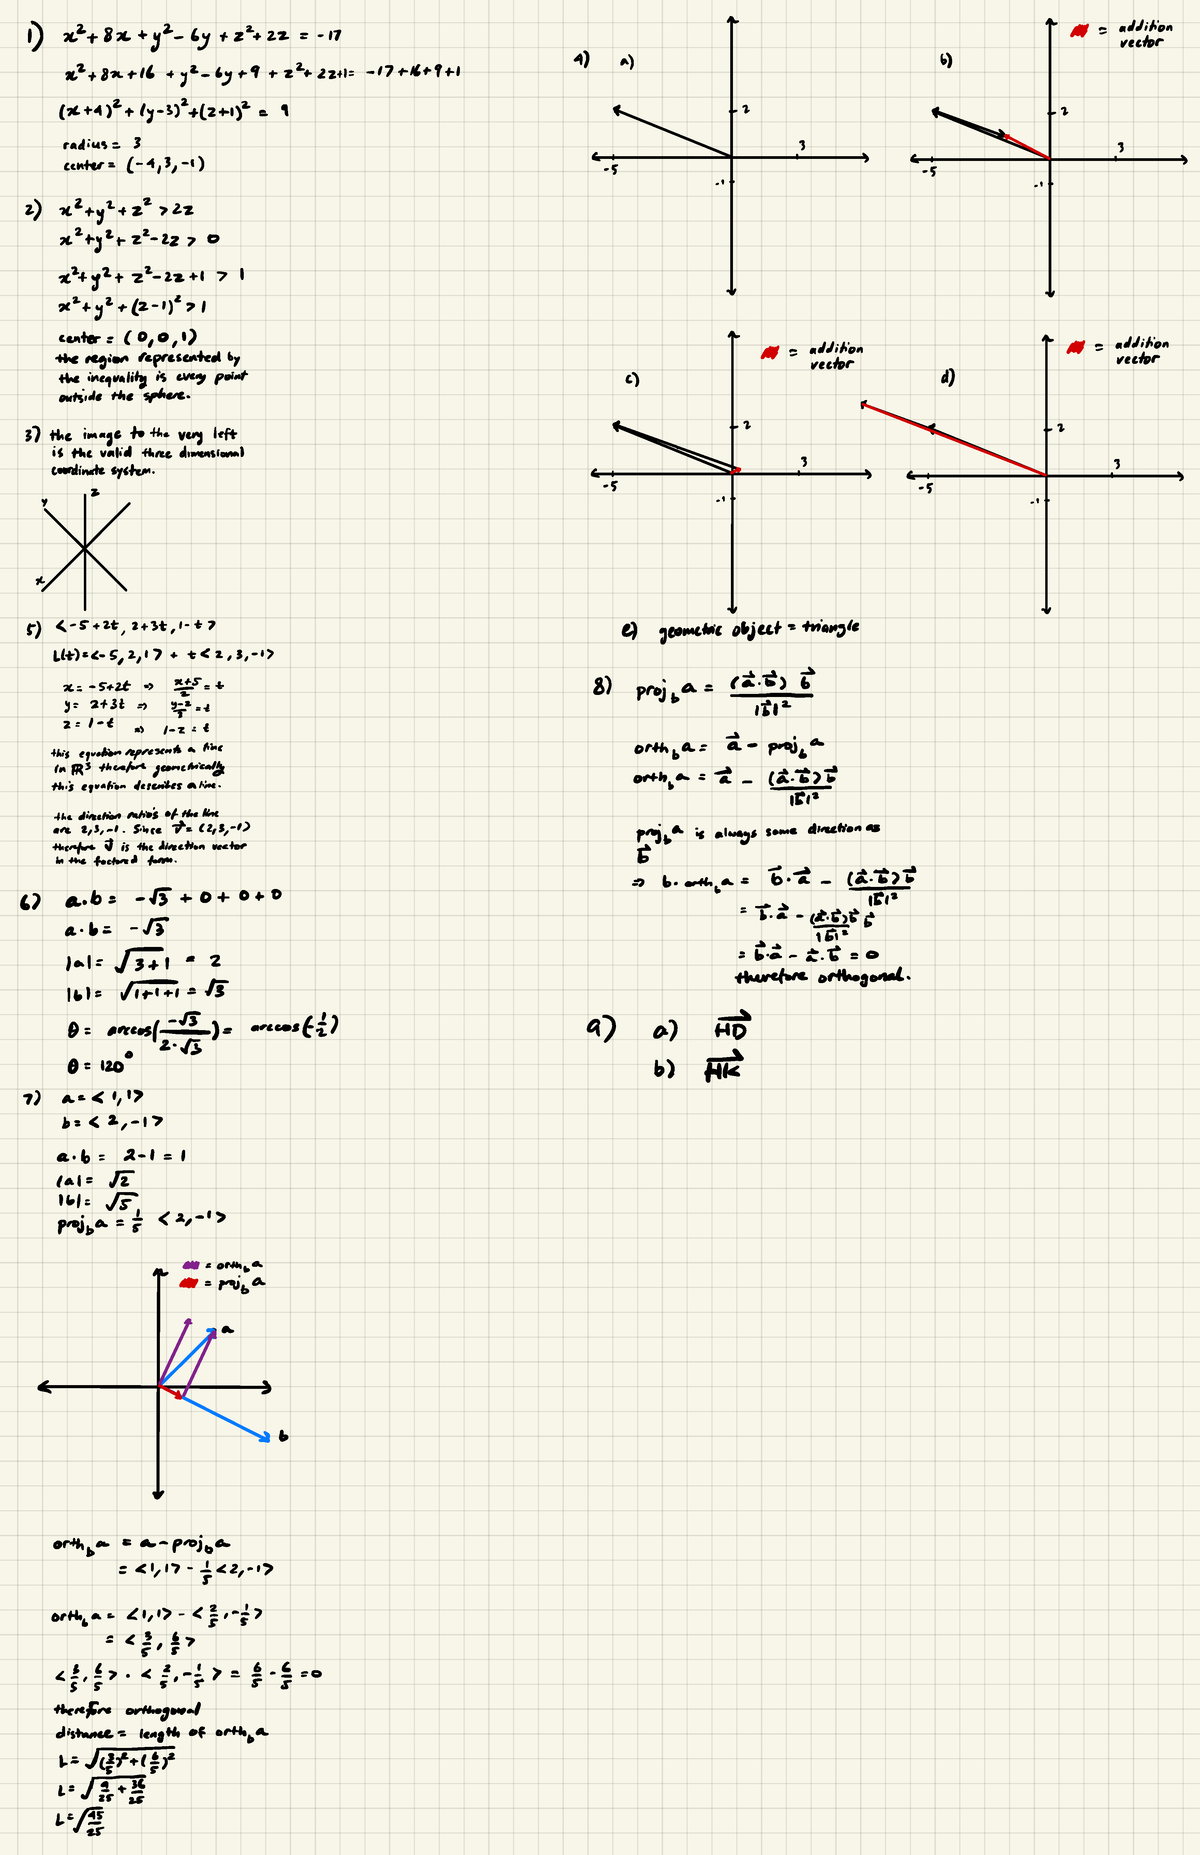 1) x² + 8x + y² - 6y + z² + 2z = -17
x² + 8x + 16 + y² - 6y + 9 + z² + 2z + 1 = -17 + 16 + 9 + 1
(x+4)² + (y-3)² + (z+1)² = 9
radius = 3
center = (-4, 3, -1)
2) x² + y² + z² > 2z
x² + y² + z² - 2z > 0
x² + y² + z² - 2z + 1 > 1
x² + y² + (z-1)² > 1
center = (0, 0, 1)
the region represented by
the inequality is every point
outside the sphere.
3) the image to the very left
is the valid three dimensional
coordinate system.
z
y
x
5) <-5+2t, 2+3t, 1-t>
L(t) = <-5, 2, 1> + t<2, 3, -1>
x = -5+2t ⇒ (x+5)/2 = t
y = 2+3t ⇒ (y-2)/3 = t
z = 1-t ⇒ 1-z = t
this equation represents a line
in ℝ³ therefore geometrically
this equation describes a line.
the direction ratios of the line
are 2, 3, -1. Since v⃗ = (2, 3, -1)
therefore v⃗ is the direction vector
in the factored form.
6) a·b = -√3 + 0 + 0 + 0
a·b = -√3
|a| = √(3+1) = 2
|b| = √(1+1+1) = √3
θ = arccos(-√3/(2·√3)) = arccos(-1/2)
θ = 120°
7) a = <1, 1>
b = <2, -1>
a·b = 2-1 = 1
|a| = √2
|b| = √5
proj_b a = 1/5 <2, -1>
= orth_b a
= proj_b a
a
b
orth_b a = a - proj_b a
= <1, 1> - 1/5 <2, -1>
orth_b a = <1, 1> - <2/5, -1/5>
= <3/5, 6/5>
<3/5, 6/5> · <2/5, -1/5> = 6/5 - 6/5 = 0
therefore orthogonal
distance = length of orth_b a
L = √((3/5)² + (6/5)²)
L = √(9/25 + 36/25)
L = √(45/25)
4) a)
2
-5
3
-1
b)
= addition
vector
2
-5
3
-1
c)
= addition
vector
2
-5
3
-1
d)
= addition
vector
2
-5
3
-1
e) geometric object = triangle
8) proj_b a = (a⃗·b⃗) b⃗ / |b⃗|²
orth_b a = a⃗ - proj_b a
orth_b a = a⃗ - (a⃗·b⃗)b⃗ / |b⃗|²
proj_b a is always same direction as
b⃗
⇒ b·orth_b a = b⃗·a⃗ - (a⃗·b⃗)b⃗ / |b⃗|²
= b⃗·a⃗ - (a⃗·b⃗)b⃗ / |b⃗|² b⃗
= b⃗·a⃗ - a⃗·b⃗ = 0
therefore orthogonal.
9) a) HD⃗
b) HK⃗